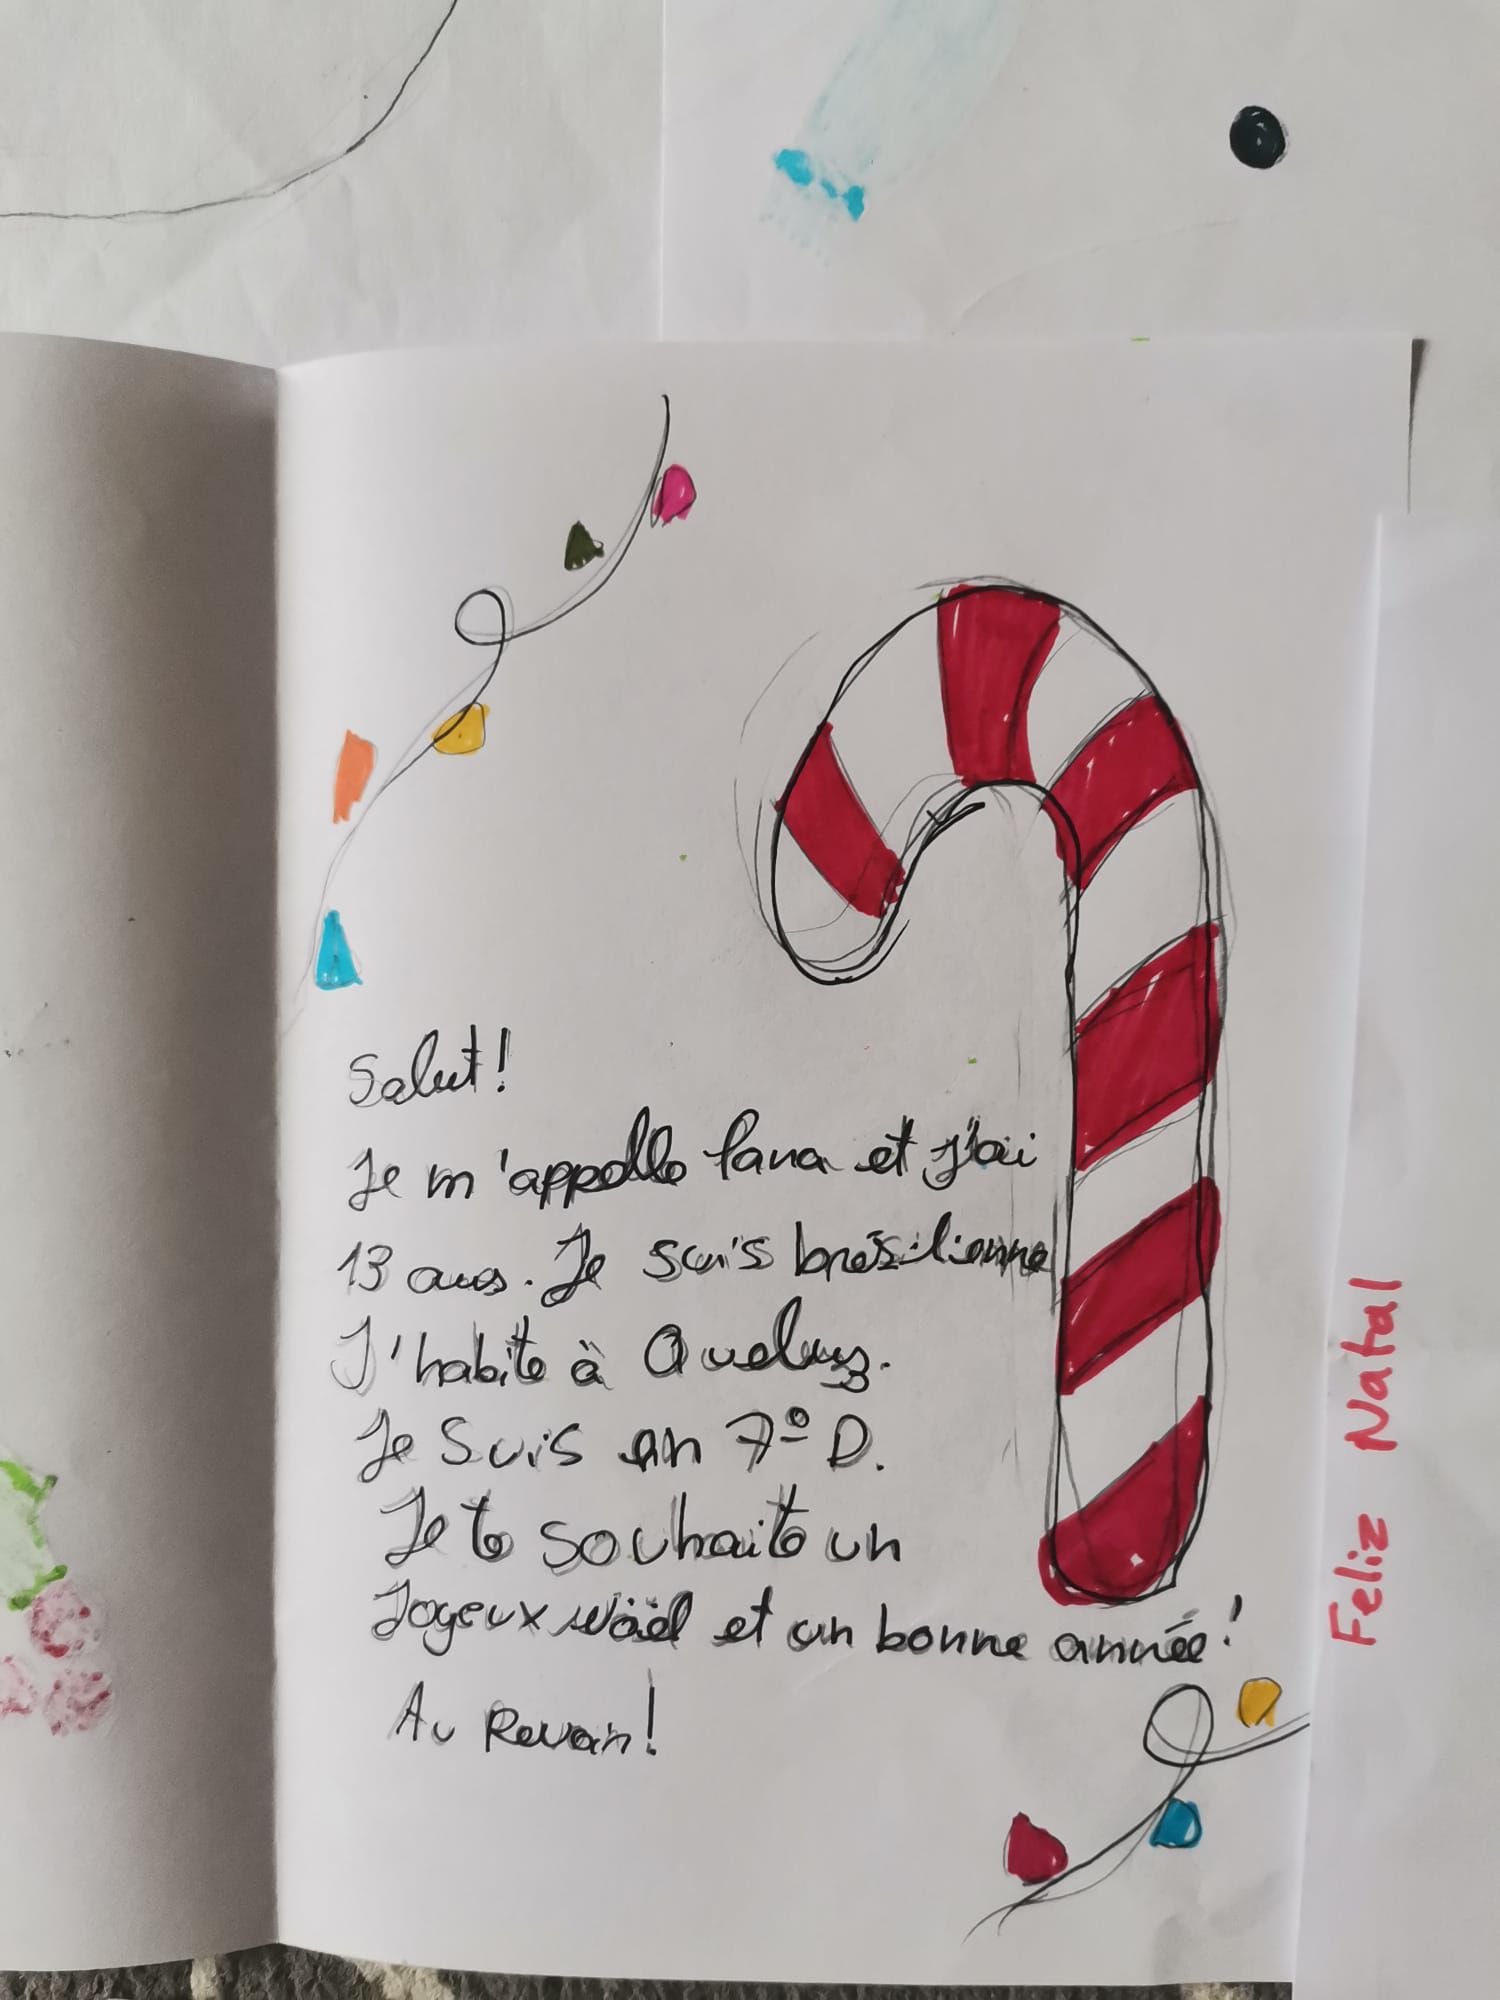 Salut!
Je m'appelle Lana et j'ai
13 ans. Je suis brésilienne
J'habite à Queluz.
Je suis en 7º D.
Je te souhaite un
Joyeux Nöel et un bonne année!
Au Revoir!
Feliz Natal